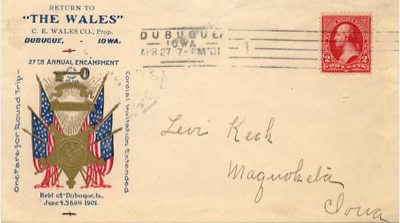 RETURN TO
"THE WALES"
C. E. WALES CO., Prop.
DUBUQUE, IOWA.
27TH ANNUAL ENCAMPMENT
One Fare for Round Trip
Cordial Invitation Extended
Held at Dubuque, Ia.
June 4, 5 & 6th 1901
DUBUQUE,
IOWA
APR 27 7-PM '01
2 2
TWO CENTS
Levi Keck
Maquoketa
Iowa